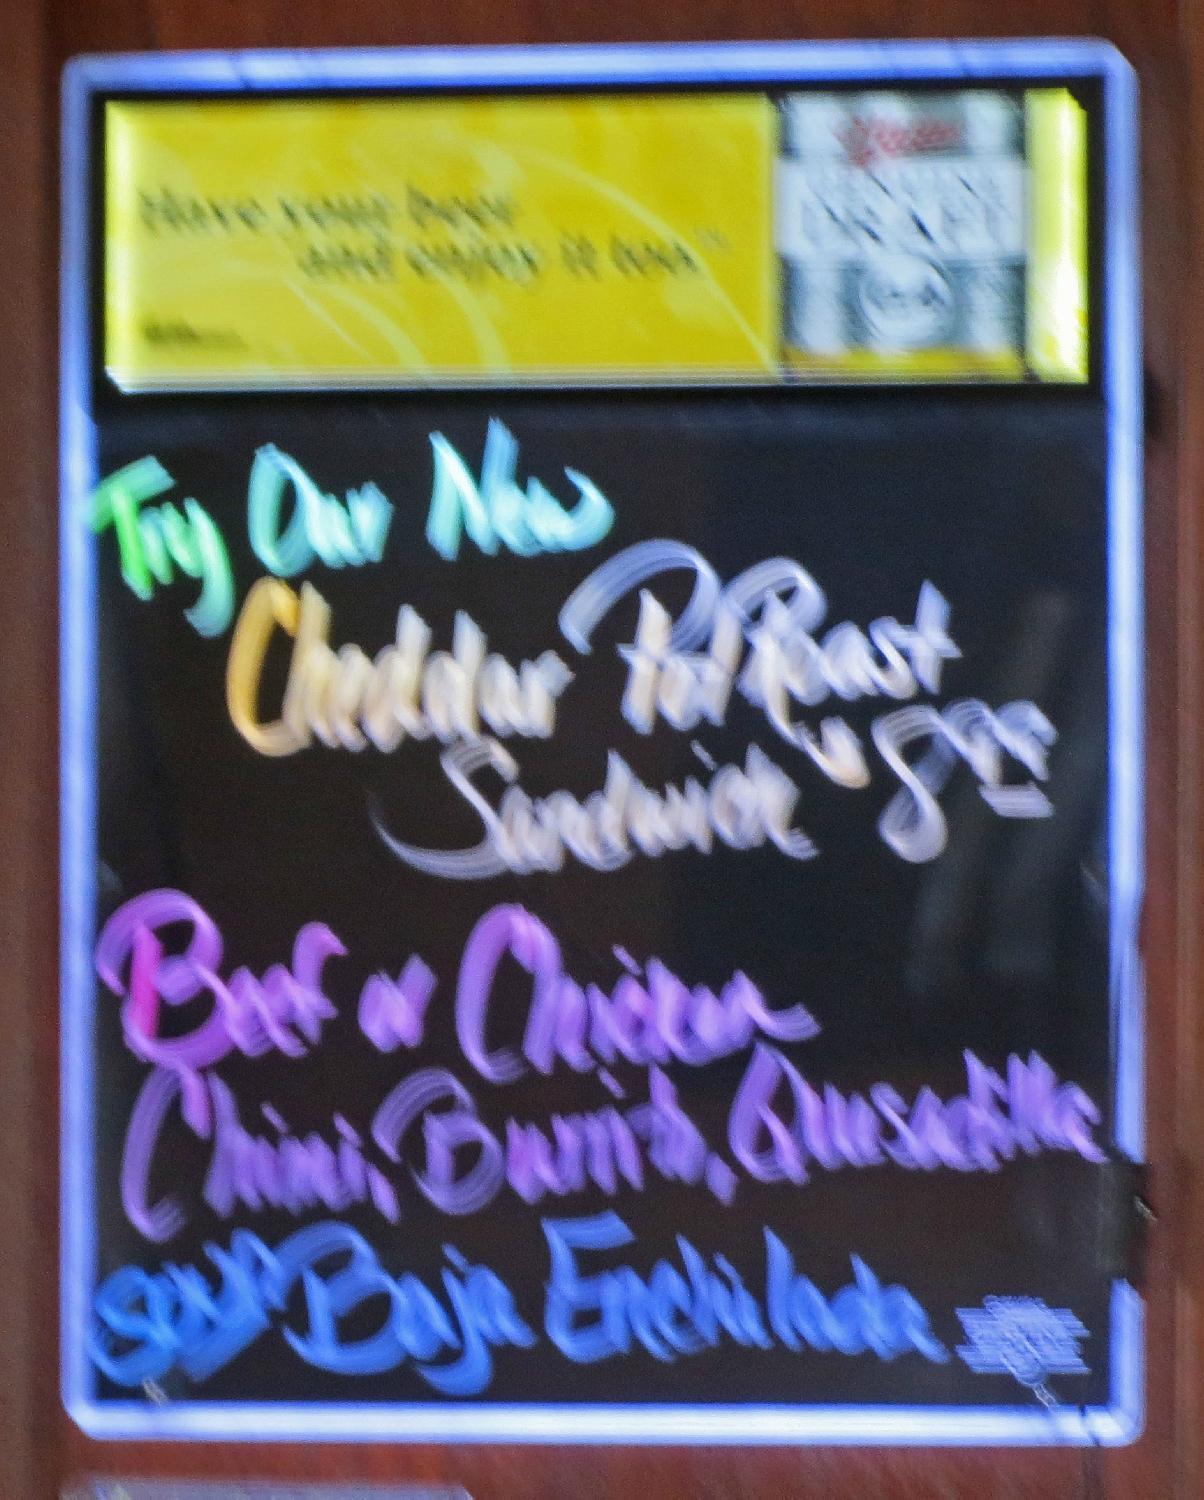 Have your beer
and enjoy it too"
Miller
GENUINE
DRAFT
Try Our New
Cheddar Pot Roast
Sandwich
Beef or Chicken
Chimi, Burrito, Quesadilla
Baja Enchilada